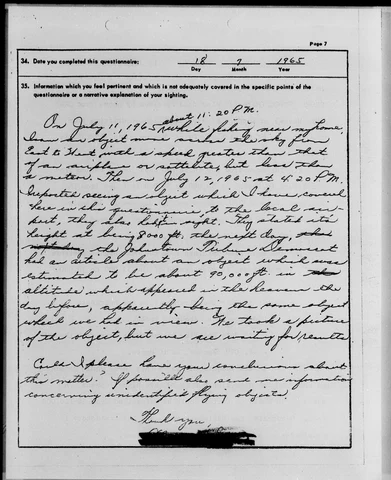 Page 7
34. Date you completed this questionnaire: 18 7 1965
Day Month Year
35. Information which you feel pertinent and which is not adequately covered in the specific points of the
questionnaire or a narrative explanation of your sighting.
about 11:20 P.M.
On July 11, 1965 while fishing near my home
I saw an object move across the sky from
East to West with a speed greater than that
of an airplane or satellite, but less than
a meteor. Then on July 12, 1965 at 4:20 P.M.
I reported seeing an object which I have covered
here in this questionnaire, to the local air-
port, they also had sight. They stated its
height at being 8000 ft. the next day,
the Johnstown Tribune Democrat
had an article about an object which was
estimated to be about 90,000 ft. in
altitude which appeared in the heavens the
day before, apparently being the same object
which we had in view. We took a picture
of the object, but we are waiting for results
Could I please have your conclusions about
this matter? If possible also send me information
concerning unidentified flying objects.
Thank you,